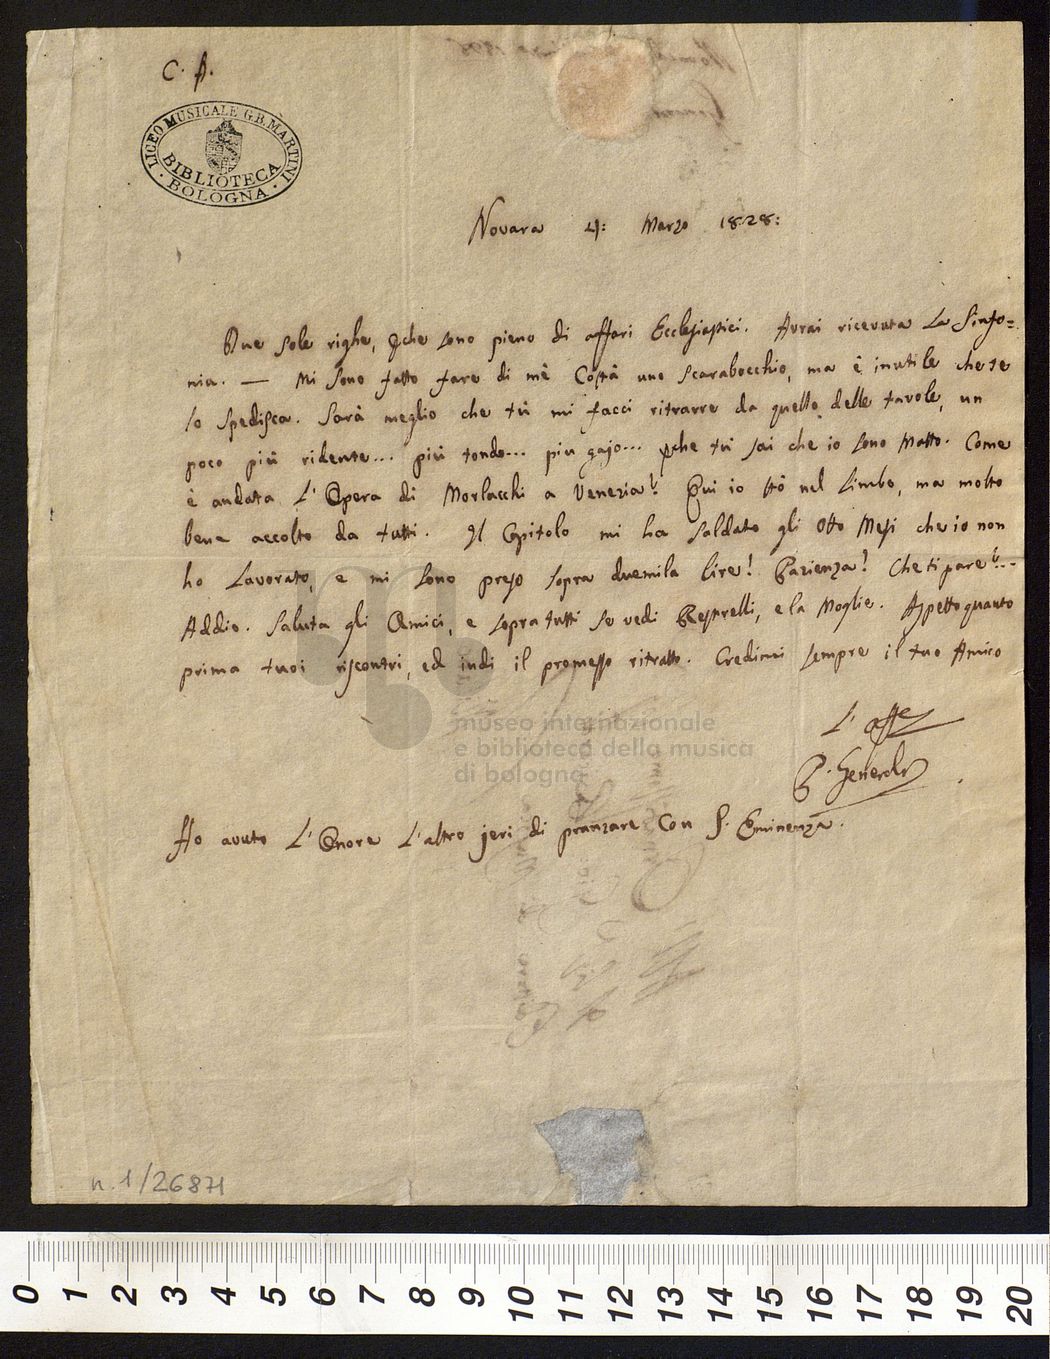 C. A.
LICEO MUSICALE G.B. MARTINI
BIBLIOTECA
BOLOGNA
Novara 4: Marzo 1828:
Due sole righe, perche sono pieno di affari Ecclesiastici. Avrai ricevuta la Sinfo=
nia. — Mi sono fatto fare di mè Costà uno scarabocchio, ma è inutile che te
lo spedisca. Sarà meglio che tù mi facci ritrarre da quello delle tavole, un
poco più ridente... più tondo... piu gajo... perche tù sai che io sono Matto. Come
è andata l'Opera di Morlacchi a Venezia? Qui io stò nel Limbo, ma molto
bene accolto da tutti. Il Capitolo mi ha saldato gli Otto Mesi che io non
ho Lavorato, e mi sono preso sopra duemila lire! Pazienza! Che ti pare?...
Addio. Saluta gli Amici, e sopra tutti se vedi Pestrelli, e la Moglie. Aspetto quanto
prima tuoi riscontri, ed indi il promesso ritratto. Credimi sempre il tuo Amico
L' affe
P. Generali
Ho avuto l'Onore l'altro jeri di pranzare con S. Eminenza.
museo internazionale
e biblioteca della musica
di bologna
n. 1/26871
0 1 2 3 4 5 6 7 8 9 10 11 12 13 14 15 16 17 18 19 20